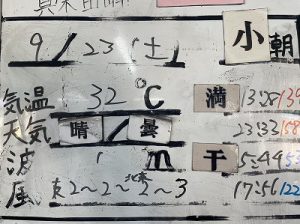 9/23(土) 小 朝
気温 32℃ 満 13:28 139
天気 晴/曇 23:33 158
波 1 m 干 5:49
風 東2~2~北東2~3 17:56 122